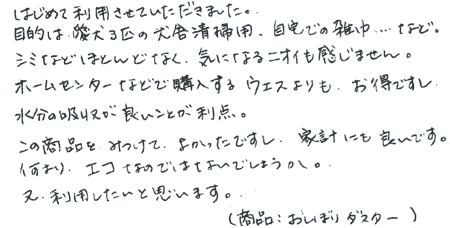 はじめて利用させていただきました。
目的は愛犬3匹の犬舎清掃用、自宅での雑巾…など。
シミなどほとんどなく、気になるニオイも感じません。
ホームセンターなどで購入するウエスよりも、お得ですし
水分の吸収が良いことが利点。
この商品をみつけて、よかったですし、家計にも良いです。
何より、エコなのではないでしょうか。
又、利用したいと思います。
(商品：おしぼりダスター)